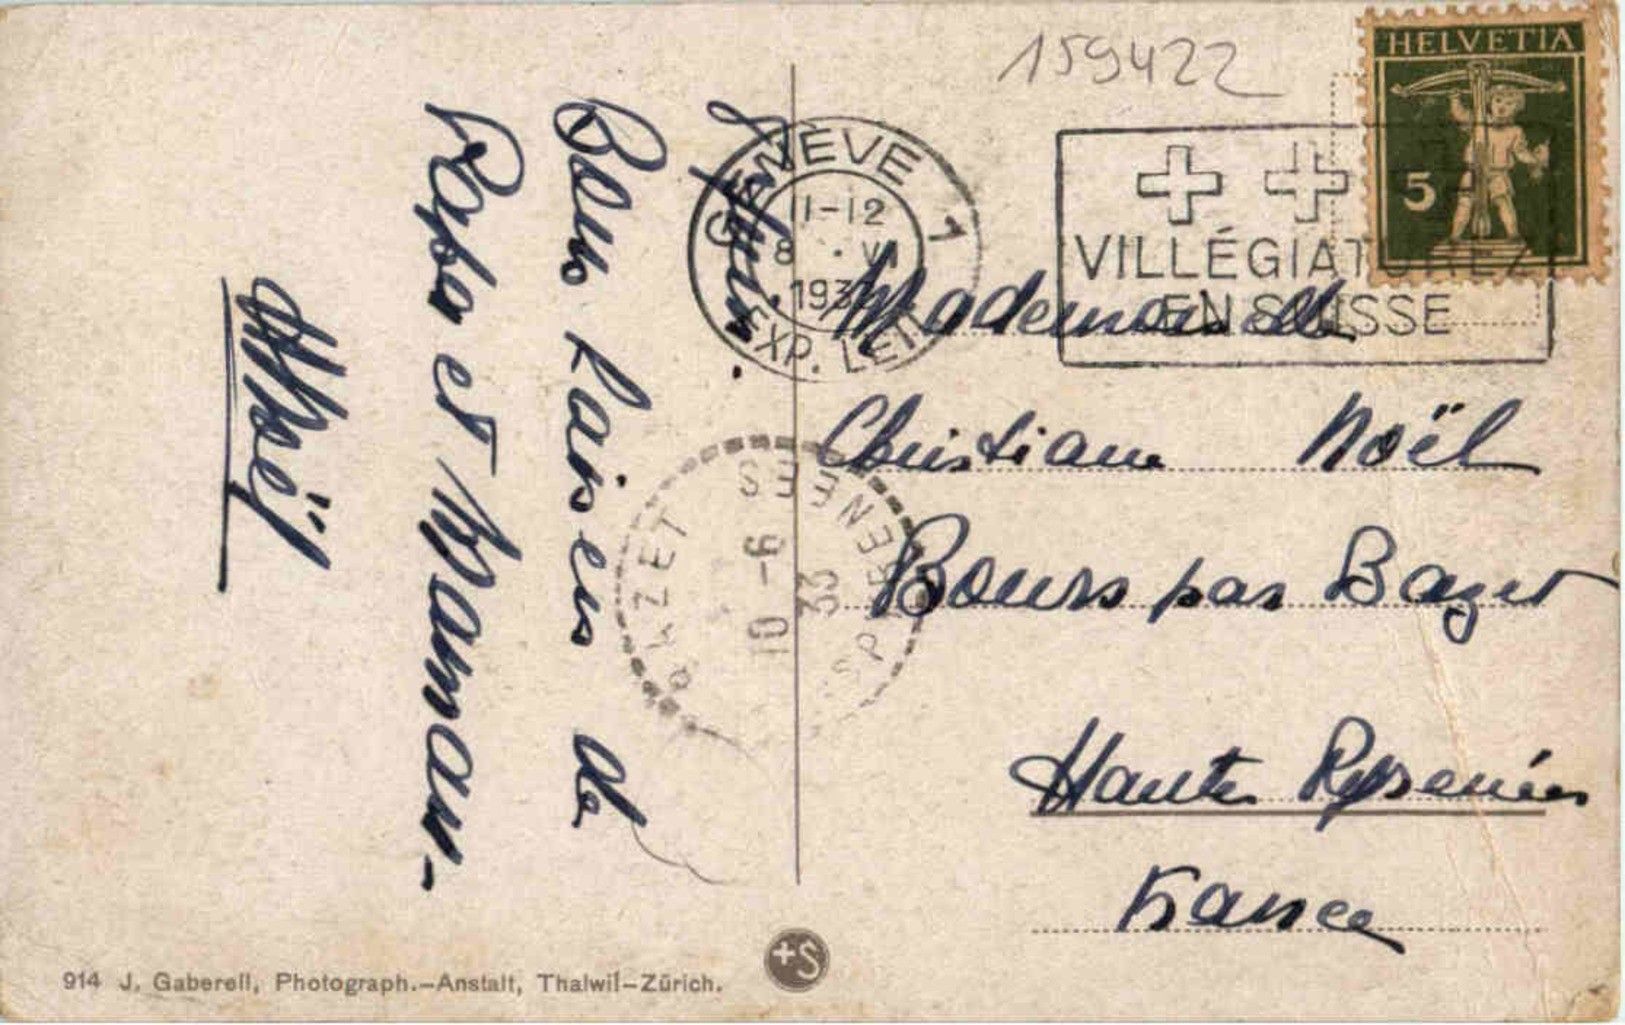 159422
HELVETIA
5
GENÈVE 1
11-12
8 . VI
1933
EXP. LETT
VILLÉGIATUREZ
EN SUISSE
Bons baisers de
Papa et Maman-
Noël
Mademoiselle
Christiane Noël
Bours par Bazet
Hautes Pyrénées
France
BAZET
10-6
33
PYRENEES
914 J. Gaberell, Photograph.-Anstalt, Thalwil-Zürich.
+S